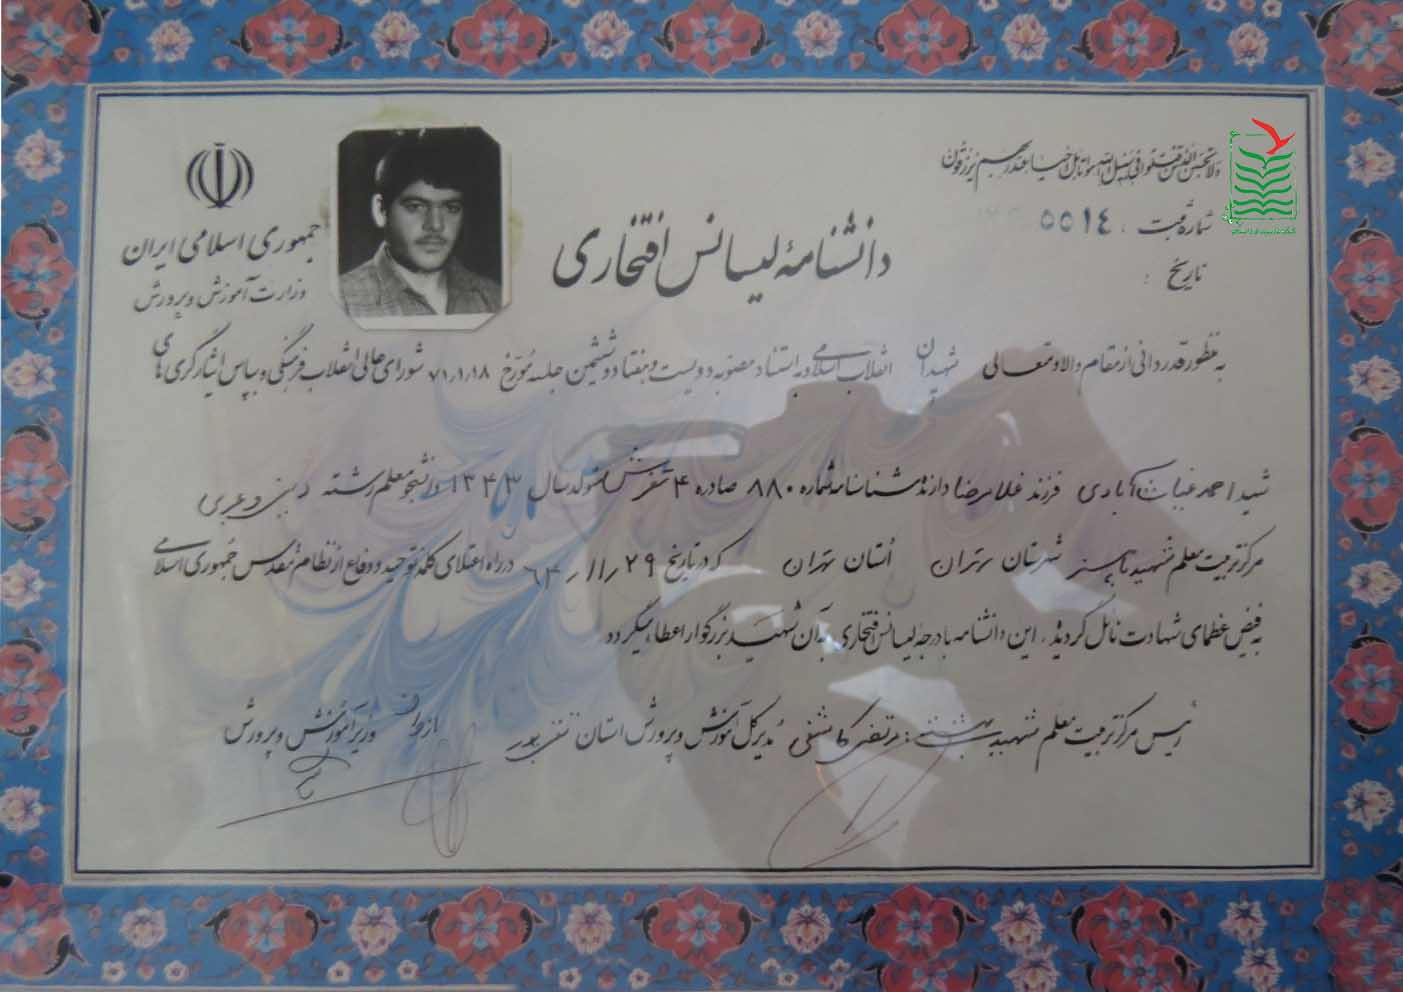 ولا تحسبن الذین قتلوا فی سبیل الله امواتا بل احیاء عند ربهم یرزقون
شماره ثبت : ۵۵۱۴
تاریخ :
جمهوری اسلامی ایران
وزارت آموزش و پرورش
دانشنامهٔ لیسانس افتخاری
به منظور قدردانی از مقام والا و متعالی شهیدان انقلاب اسلامی و به استناد مصوبه دویست و هفتاد و ششمین جلسه مورخ ۷۱/۱/۱۸ شورای عالی انقلاب فرهنگی و بپاس ایثارگری های
شهید احمد غیاث آبادی فرزند غلامرضا دارنده شناسنامه شماره ۸۸۰ صادره ۴ تفرش متولد سال ۱۳۴۳ دانشجو معلم رشته دینی و عربی
مرکز تربیت معلم شهید شهرستان تهران استان تهران که در تاریخ ۶۴/۱۱/۲۹ در راه اعتلای کلمه توحید و دفاع از نظام مقدس جمهوری اسلامی
به فیض عظمای شهادت نائل گردیده، این دانشنامه با درجه لیسانس افتخاری به آن شهید بزرگوار اعطا میگردد
رئیس مرکز تربیت معلم شهید بهشتی : مرتضی کاشفی مدیر کل آموزش و پرورش استان وزیر آموزش و پرورش